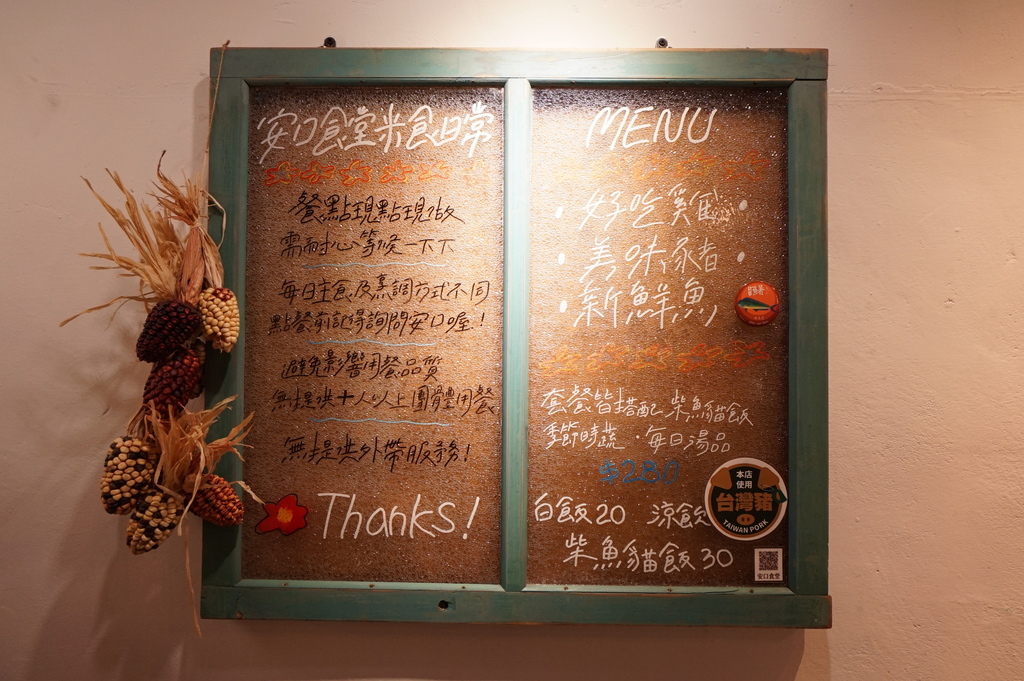 安口食堂米食日常
餐點現點現做
需耐心等候一下下
每日主食及烹調方式不同
點餐前記得詢問安口喔!
避免影響用餐品質
無提供十人以上團體用餐
無提供外帶服務!
Thanks!
MENU
• 好吃雞
• 美味豬 •
• 新鮮魚
套餐皆搭配 柴魚貓飯
季節時蔬 · 每日湯品
$280
白飯20 涼飲
柴魚貓飯 30
本店
使用
台灣豬
TAIWAN PORK
安口食堂